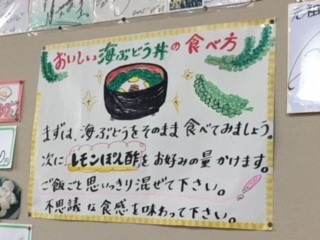 おいしい海ぶどう丼の食べ方
まずは、海ぶどうをそのまま食べてみましょう。
次にレモンぽん酢をお好みの量かけます。
ご飯ごと思いっきり混ぜて下さい。
不思議な食感を味わって下さい。